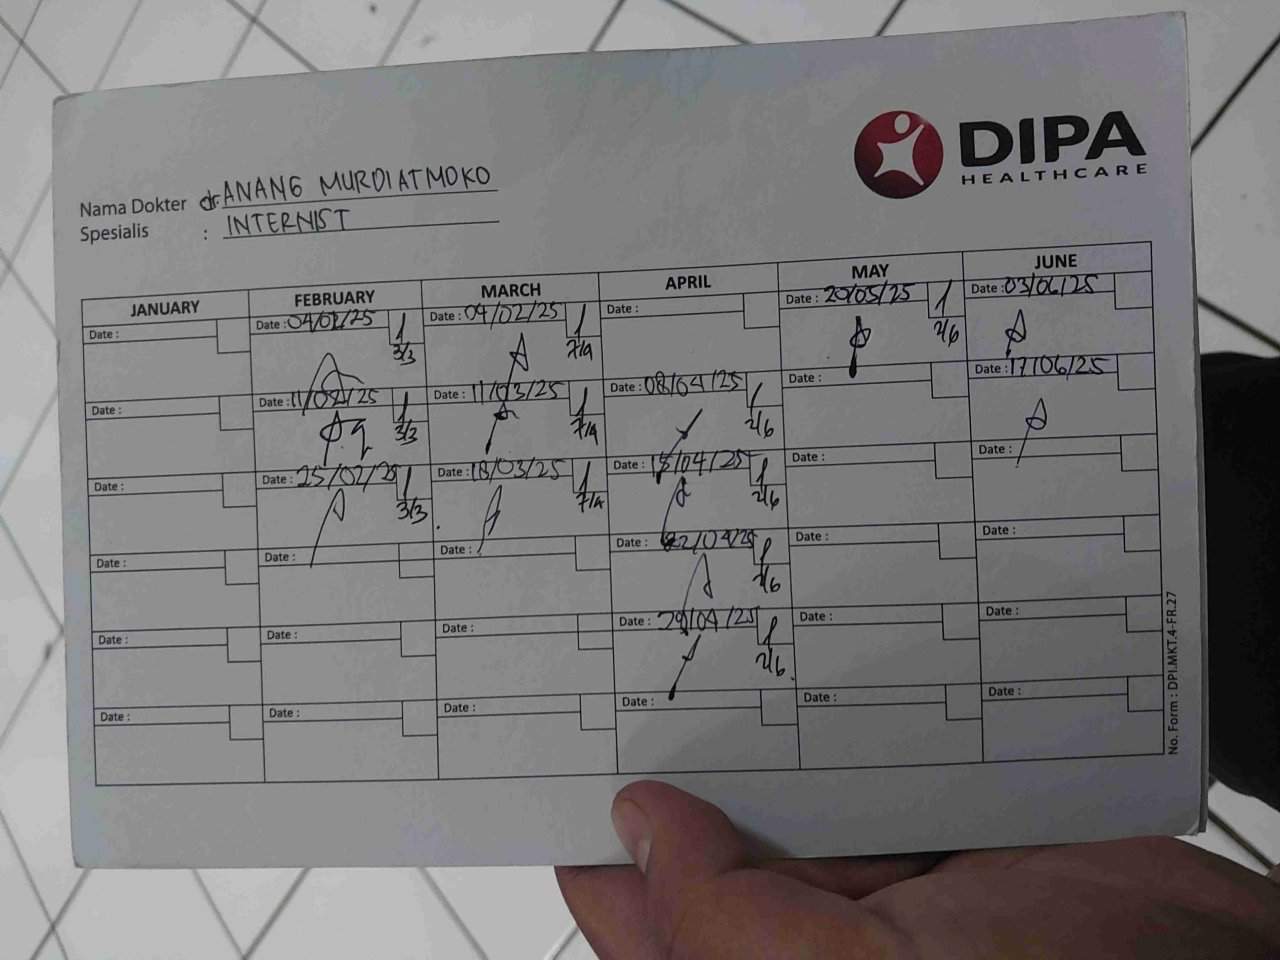 DIPA
HEALTHCARE
Nama Dokter dr. ANANG MURDIATMOKO
Spesialis : INTERNIST
JANUARY FEBRUARY MARCH APRIL MAY JUNE
Date : Date : 04/02/25 Date : 04/02/25 Date : Date : 20/05/25 Date : 03/06/25
3/3 7/4 2/6
Date : Date : 11/02/25 Date : 11/03/25 Date : 08/04/25 Date : Date : 17/06/25
3/3 7/4 2/6
Date : Date : 25/02/25 Date : 18/03/25 Date : 15/04/25 Date : Date :
3/3 7/4 2/6
Date : Date : Date : Date : 22/04/25 Date : Date :
2/6
Date : Date : Date : Date : 29/04/25 Date : Date :
2/6
Date : Date : Date : Date : Date : Date :
No. Form : DPI.MKT.4-FR.27